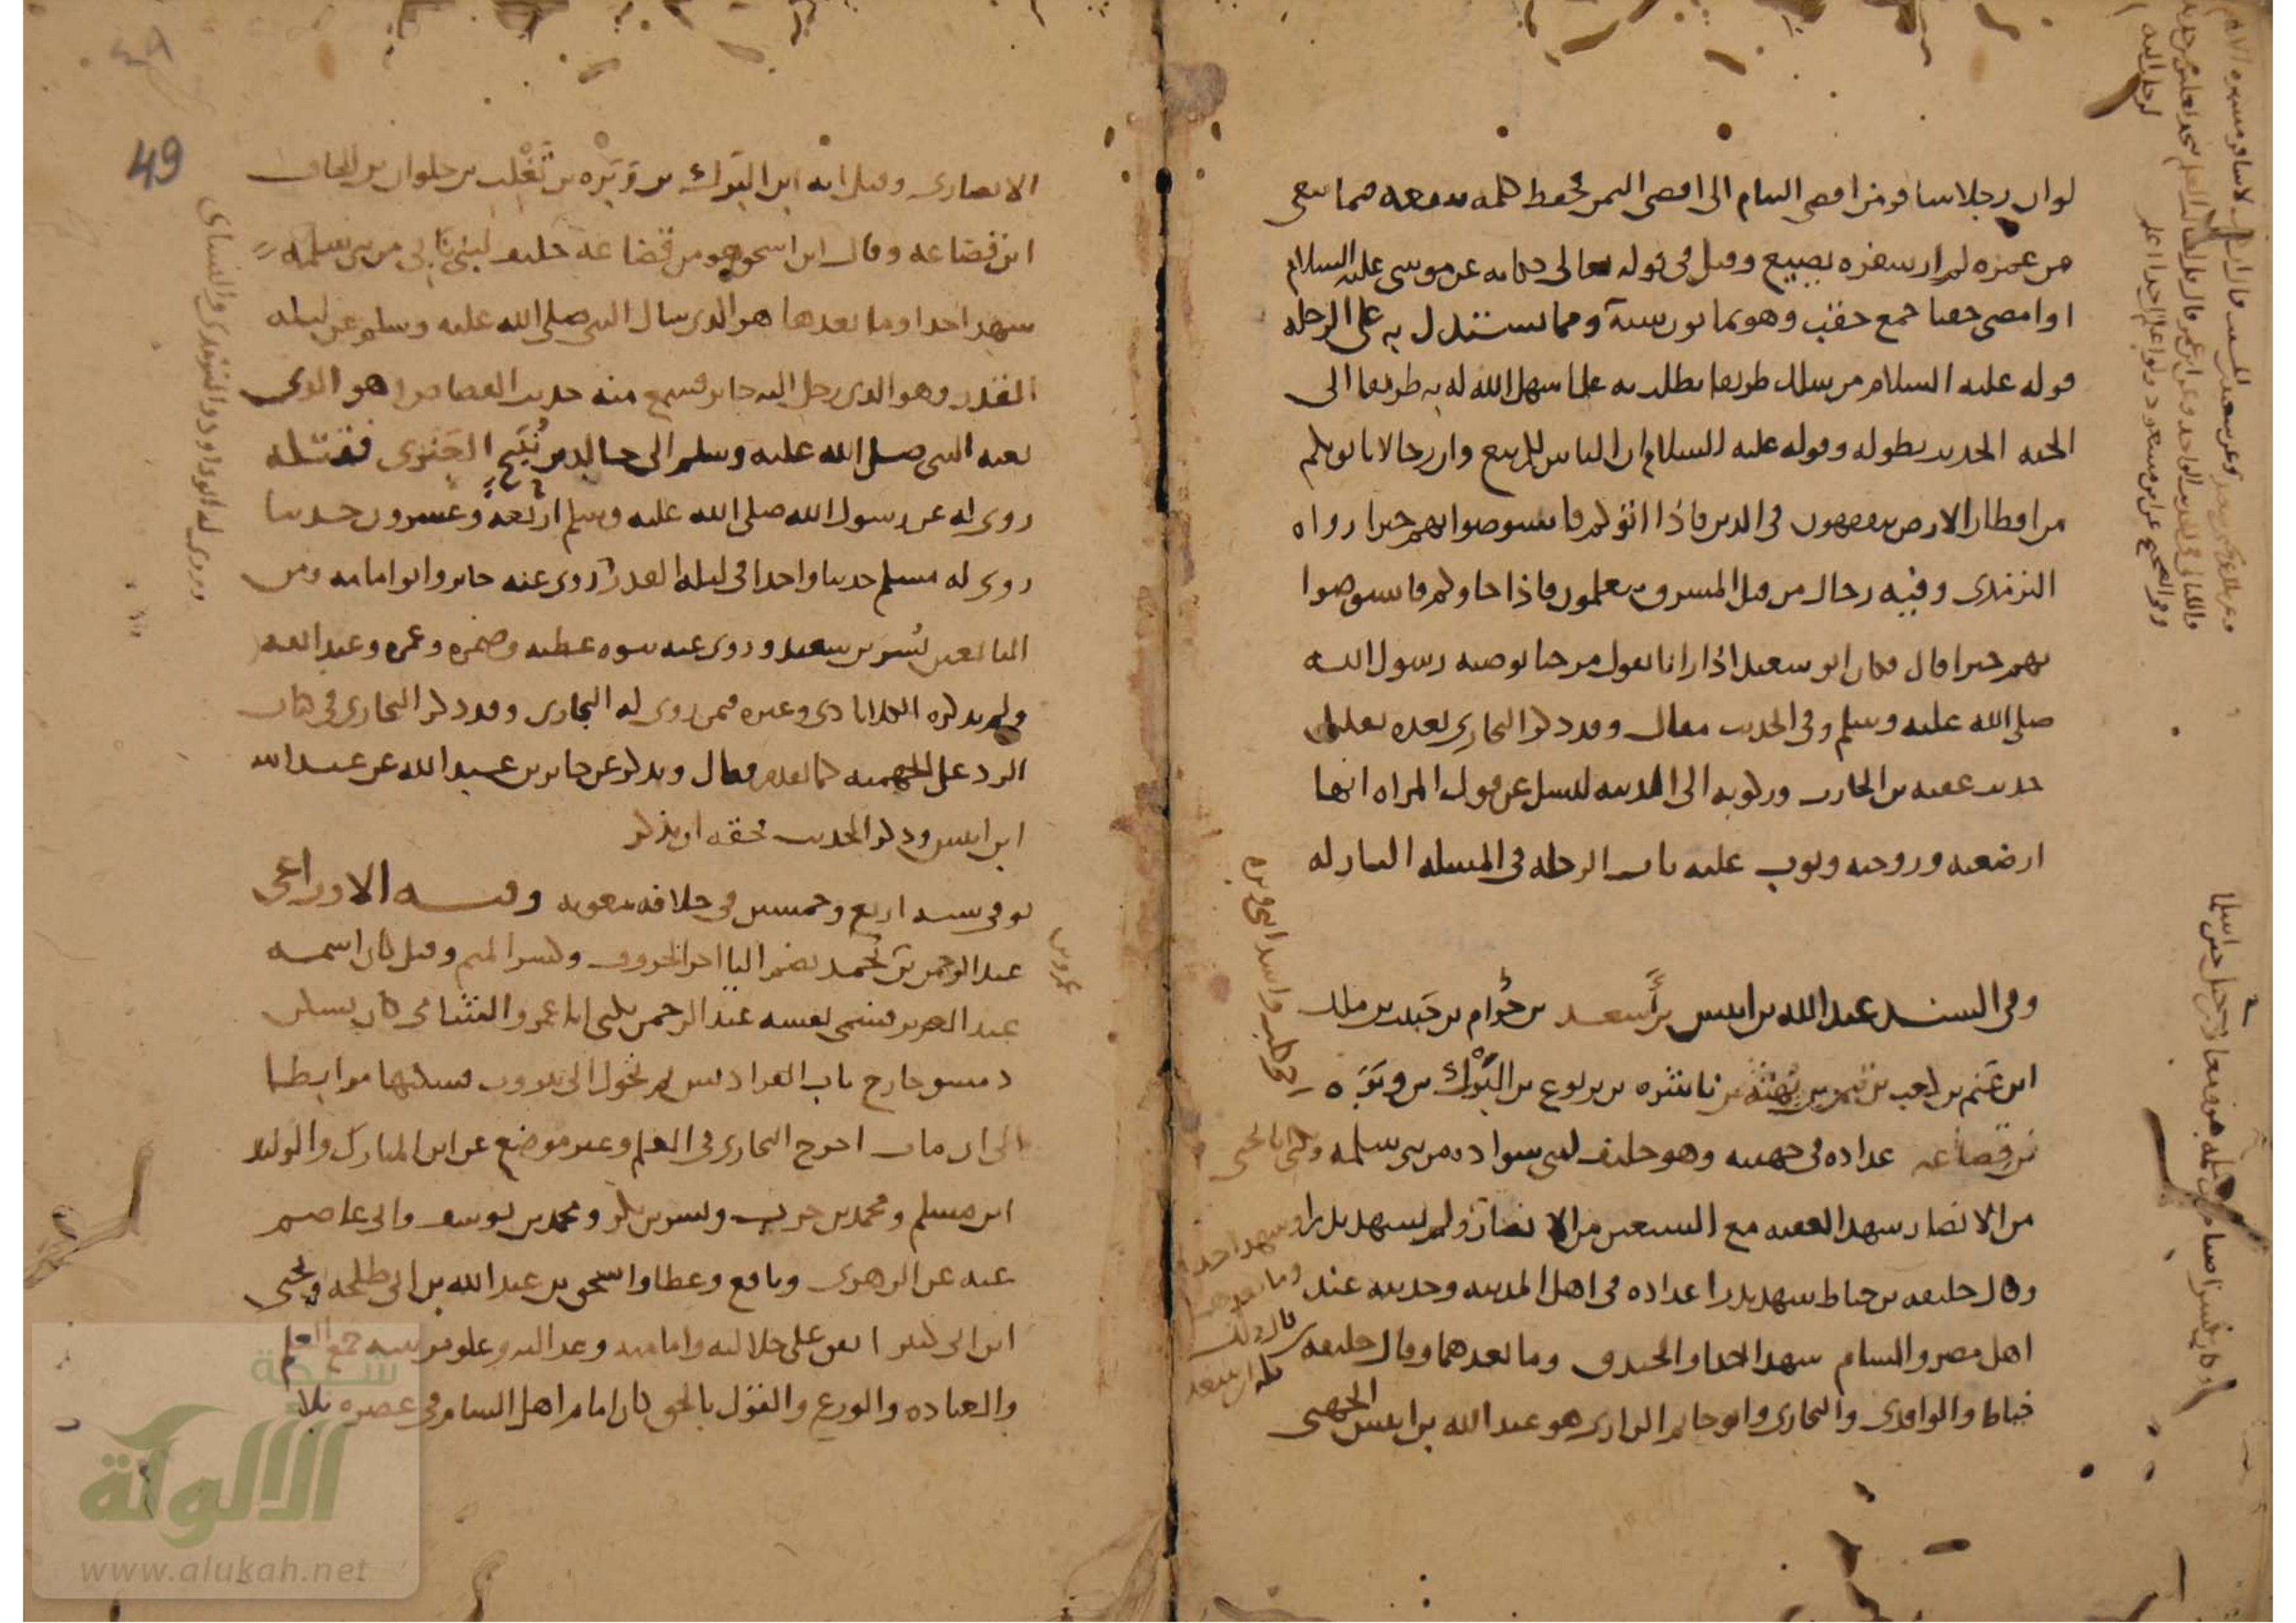 لو ان رجلا سافر من اقصى الشام الى اقصى اليمن فحفظ كلمة تنفعه فيما بقي
من عمره لم ار سفره يضيع وقيل في قوله تعالى حكاية عن موسى عليه السلام
او امضي حقبا جمع حقب وهو ثمانون سنة ومما يستدل به على الرحلة
قوله عليه السلام من سلك طريقا يطلب به علما سهل الله له به طريقا الى
الجنة الحديث بطوله وقوله عليه السلام ان الناس لكم تبع وان رجالا ياتونكم
من اقطار الارض يتفقهون في الدين فاذا اتوكم فاستوصوا بهم خيرا رواه
الترمذي وفيه رجال من قبل المشرق يتعلمون فاذا جاوكم فاستوصوا
بهم خيرا قال فكان ابو سعيد اذا رانا يقول مرحبا بوصية رسول الله
صلى الله عليه وسلم وفي الحديث مقال وقد ذكر البخاري بعده تعليق
حديث عقبة بن الحارث وركوبه الى المدينة ليسل عن قول المراة انها
ارضعته وزوجته وبوب عليه باب الرحلة في المسلة النازلة
وفي السند عبد الله بن انيس بن اسعد بن حرام بن حبيب بن ملك
ابن غنم بن كعب بن تيم بن نفثة بن ناشزة بن يربوع بن البرك بن وبرة
من قضاعة عداده في جهينة وهو حليف لبني سواد من بني سلمة وكنى بابي يحيى
من الانصار شهد العقبة مع السبعين من الانصار ولم يشهد بدرا وشهد احدا
وما بعدها
وقال خليفة بن خياط شهد بدرا عداده في اهل المدينة وحديثه عند
اهل مصر والشام شهد احدا والخندق وما بعدهما وقال خليفة
خياط والواقدي والبخاري وابو حاتم الرازي هو عبد الله بن انيس الجهني
49
الانصاري وقيل انه ابن البرك بن وبرة بن تغلب بن حلوان بن الحاف
ابن قضاعة وقال ابن اسحق هو من قضاعة حليف لبني نابي من بني سلمة
شهد احدا وما بعدها هو الذي سال النبي صلى الله عليه وسلم عن ليلة
القدر وهو الذي رحل اليه جابر فسمع منه حديث القصاص هو الذي
بعثه النبي صلى الله عليه وسلم الى خالد بن نبيح العنزي فقتله
روي له عن رسول الله صلى الله عليه وسلم اربعة وعشرون حديثا
روى له مسلم حديثا واحدا في ليلة القدر روى عنه جابر وابو امامة ومن
التابعين بسر بن سعيد وروى عنه بنوه عطية وضمرة وعمرو وعبد الله
ولم يذكره الكلاباذي وغيره فيمن روى له البخاري وقد ذكر البخاري في كتاب
الرد على الجهمية كما تقدم فقال ويذكر عن جابر بن عبد الله عن عبد الله
ابن انيس وذكر الحديث فحقه ان يذكر
توفي سنة اربع وخمسين في خلافة معوية وفيه الاوزاعي
عبد الرحمن بن يحمد بضم اليا اخر الحروف وكسر الميم وقيل كان اسمه
عبد العزيز فسمى نفسه عبد الرحمن يكنى ابا عمرو الشامي كان يسكن
دمشق خارج باب الفراديس ثم تحول الى بيروت فسكنها مرابطا
الى ان مات اخرج البخاري في العلم وغير موضع عن ابن المبارك والوليد
ابن مسلم ومحمد بن حرب وبشر بن بكر ومحمد بن يوسف وابي عاصم
عنه عن الزهري ونافع وعطا واسحق بن عبد الله بن ابي طلحة ويحيى
ابن ابي كثير اتفق على جلالته وامامته وعدالته وعلو مرتبته جمع العلم
والعبادة والورع والقول بالحق كان امام اهل الشام في عصره بلا
وروى له ابو داود والترمذي والنساي
شبكة
الألوكة
www.alukah.net